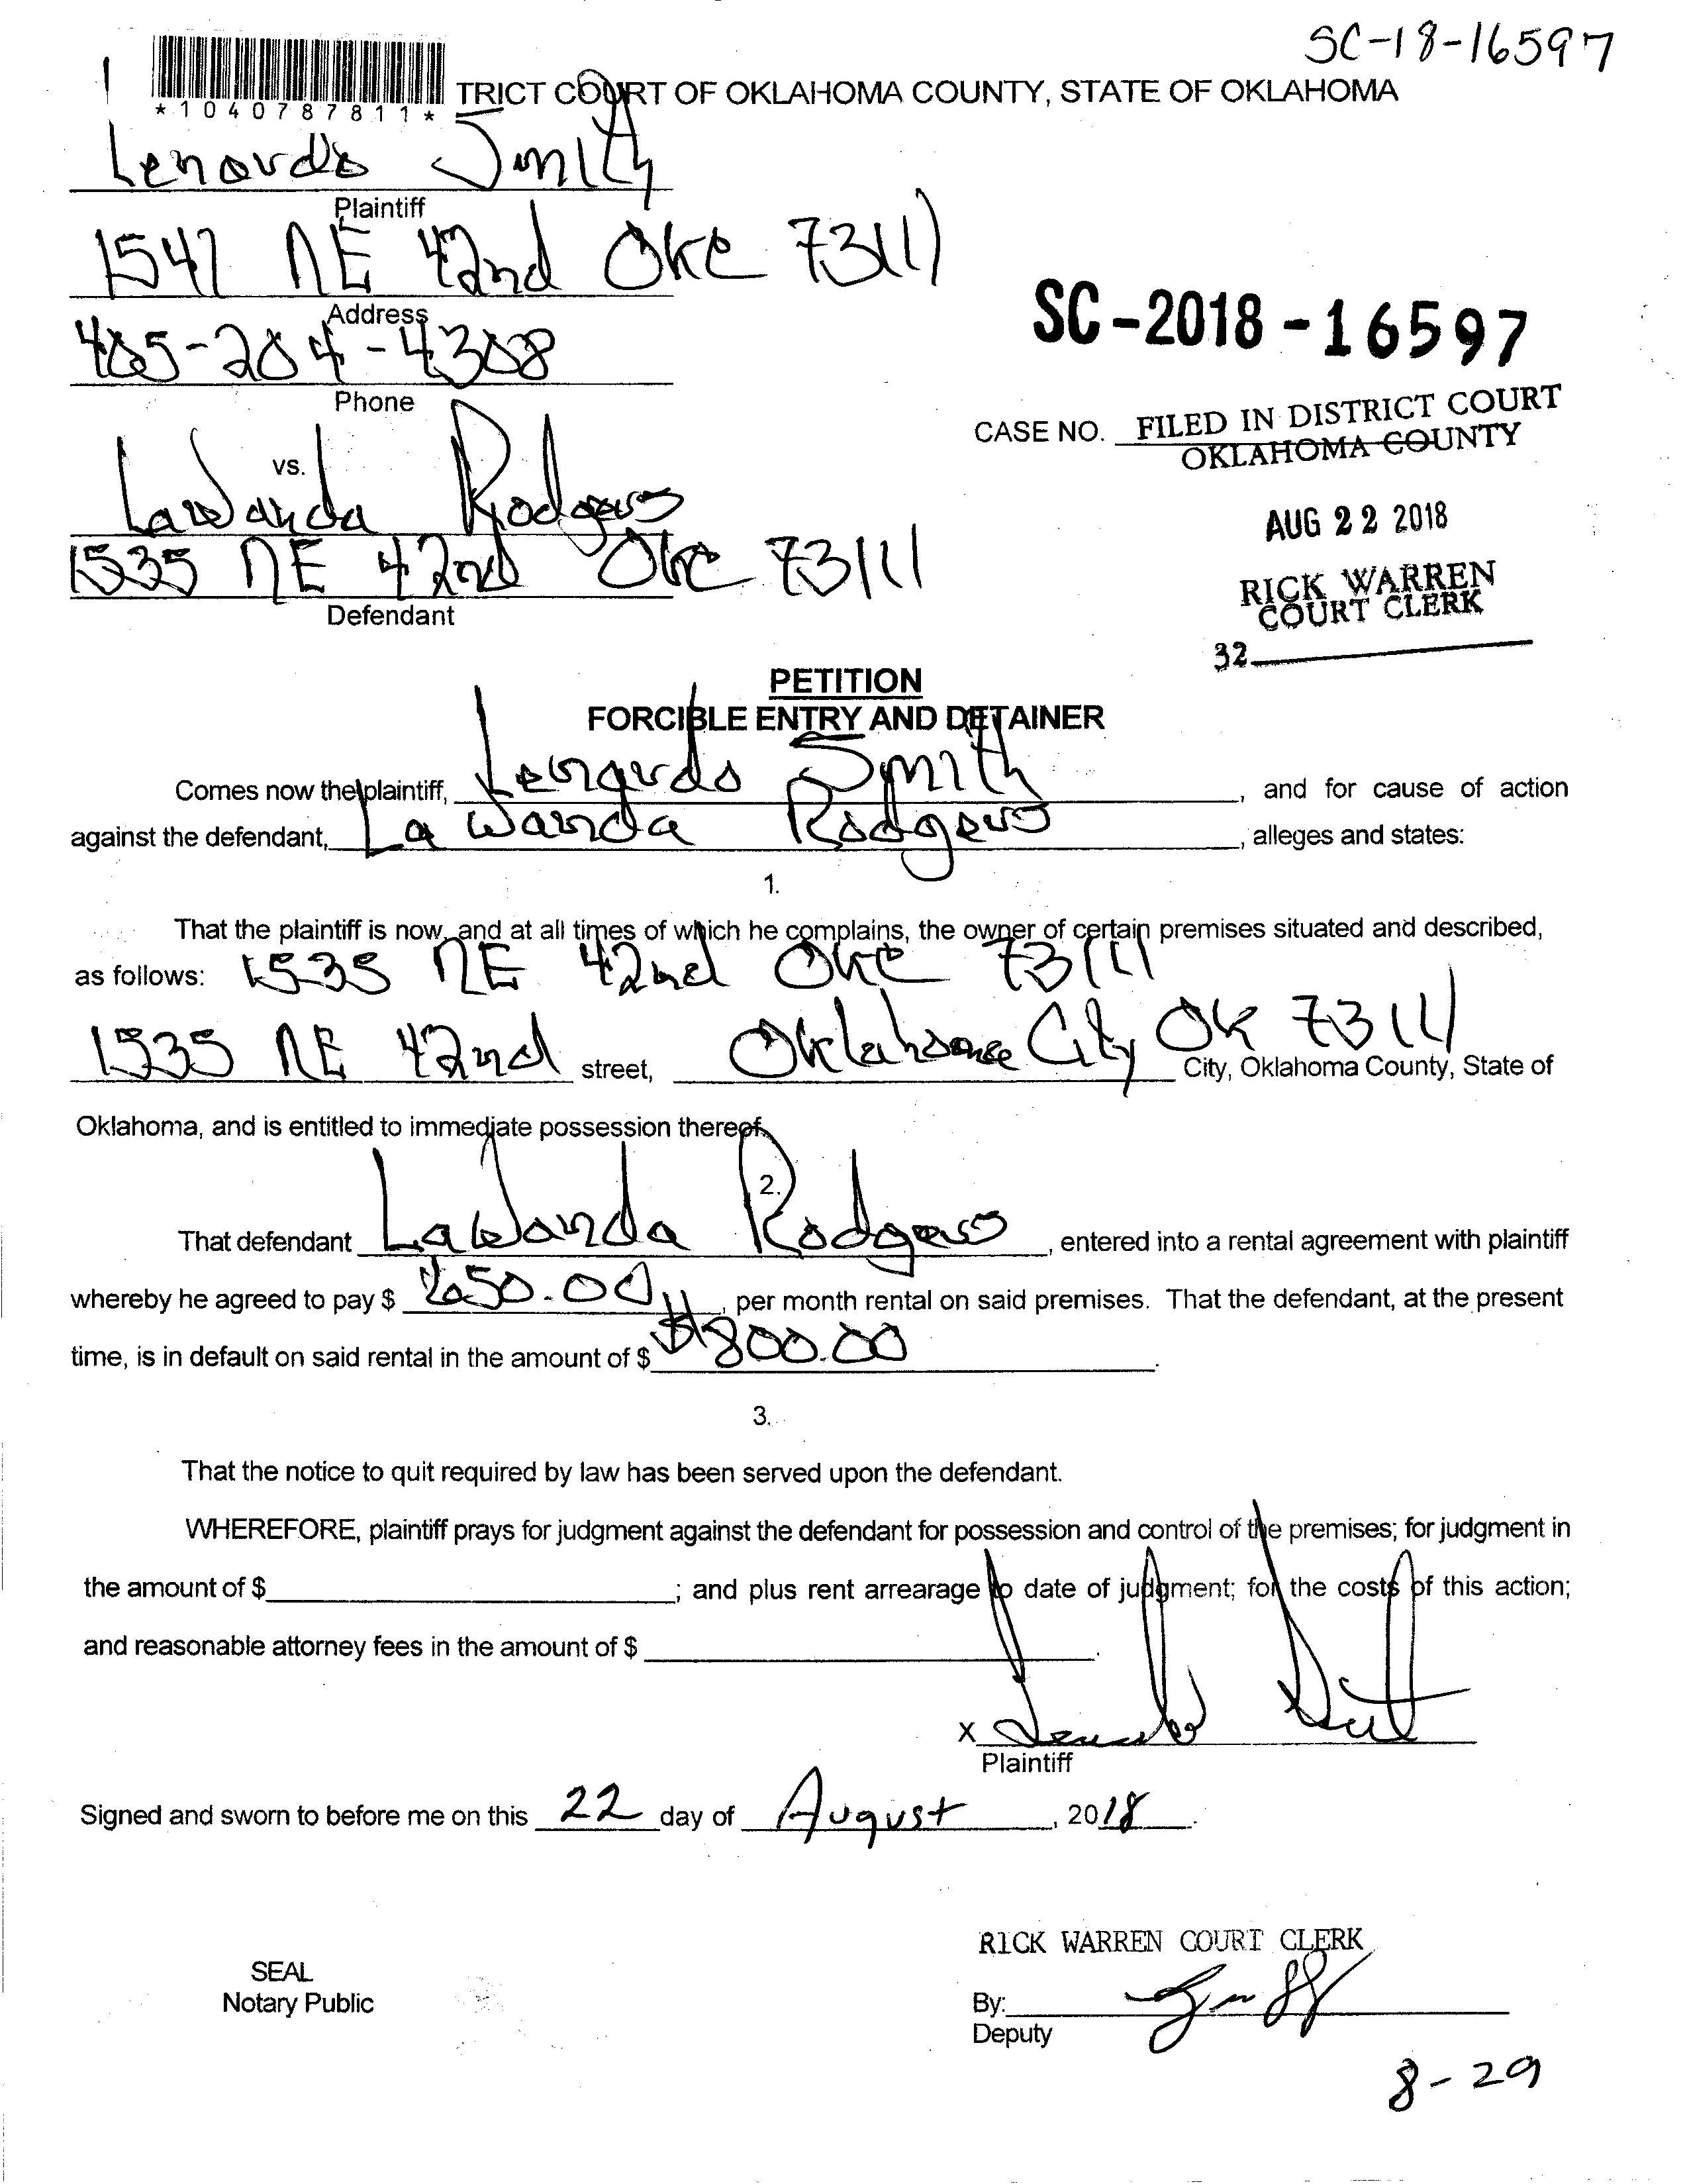 SC-18-16597
*1040787811* TRICT COURT OF OKLAHOMA COUNTY, STATE OF OKLAHOMA
Lenardo Smith
Plaintiff
1541 NE 42nd OKC 73111
Address
405-204-4308
Phone
SC-2018-16597
CASE NO. FILED IN DISTRICT COURT
OKLAHOMA COUNTY
vs.
LaWanda Rodgers
AUG 22 2018
1535 NE 42nd OKC 73111
Defendant
RICK WARREN
COURT CLERK
32
PETITION
FORCIBLE ENTRY AND DETAINER
Comes now the plaintiff, Lenardo Smith, and for cause of action
against the defendant, La Wanda Rodgers, alleges and states:
1.
That the plaintiff is now, and at all times of which he complains, the owner of certain premises situated and described,
as follows: 1535 NE 42nd OKC 73111
1535 NE 42nd street, Oklahoma City OK 73111 City, Oklahoma County, State of
Oklahoma, and is entitled to immediate possession thereof.
2.
That defendant LaWanda Rodgers, entered into a rental agreement with plaintiff
whereby he agreed to pay $ 50.00, per month rental on said premises. That the defendant, at the present
time, is in default on said rental in the amount of $ 800.00.
3.
That the notice to quit required by law has been served upon the defendant.
WHEREFORE, plaintiff prays for judgment against the defendant for possession and control of the premises; for judgment in
the amount of $ ; and plus rent arrearage to date of judgment; for the costs of this action;
and reasonable attorney fees in the amount of $ .
X Lenardo Smith
Plaintiff
Signed and sworn to before me on this 22 day of August, 2018.
RICK WARREN COURT CLERK
SEAL
Notary Public
By:
Deputy
8-29